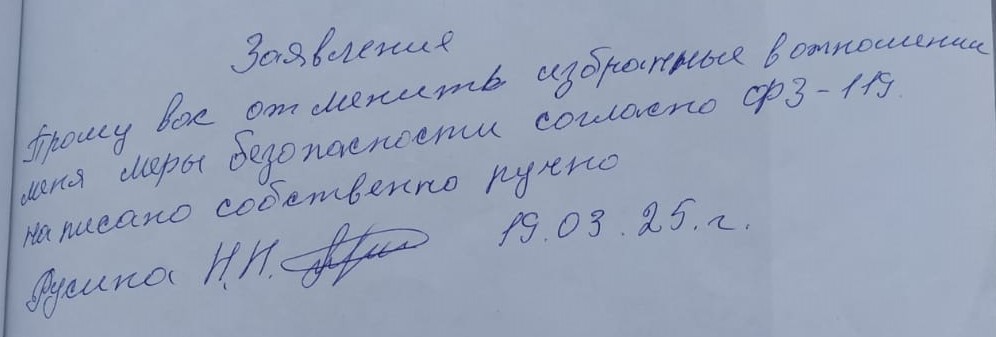 Заявления
Прошу вас отменить избранные в отношении
меня меры безопасности согласно ФЗ-119.
написано собственно ручно
Русина Н.Н. 19.03.25.г.